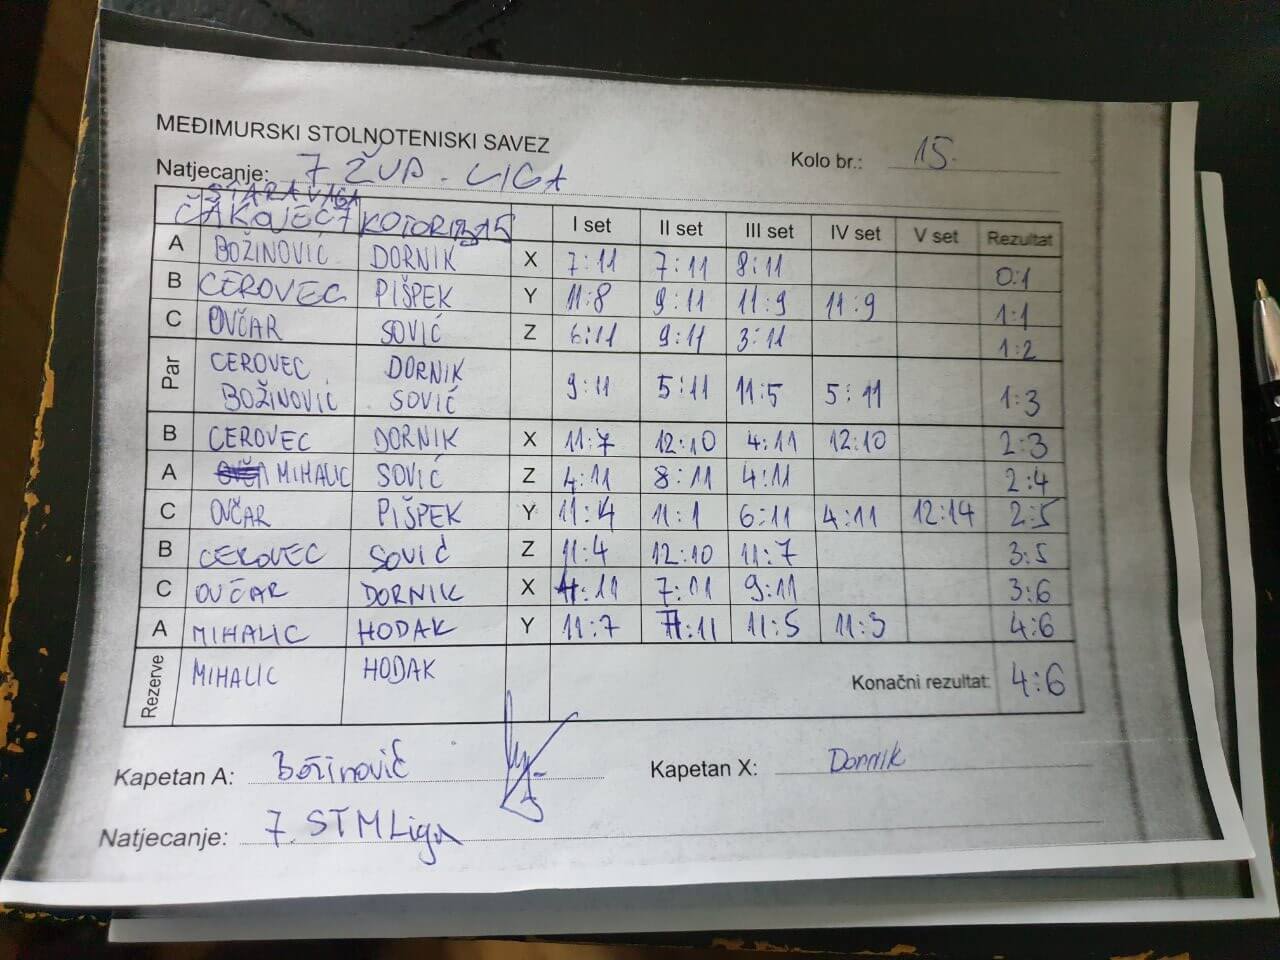 MEĐIMURSKI STOLNOTENISKI SAVEZ
Kolo br.: 15.
Natjecanje: 7 ŽUP. LIGA
ČAKOVEC 7 KOTORIBA 5 I set II set III set IV set V set Rezultat
A BOŽINOVIĆ DORNIK X 7:11 7:11 8:11 0:1
B CEROVEC PIŠPEK Y 11:8 9:11 11:9 11:9 1:1
C OVČAR SOVIĆ Z 6:11 9:11 3:11 1:2
Par CEROVEC DORNIK
BOŽINOVIĆ SOVIĆ 9:11 5:11 11:5 5:11 1:3
B CEROVEC DORNIK X 11:7 12:10 4:11 12:10 2:3
A MIHALIC SOVIĆ Z 4:11 8:11 4:11 2:4
C OVČAR PIŠPEK Y 11:4 11:1 6:11 4:11 12:14 2:5
B CEROVEC SOVIĆ Z 11:4 12:10 11:7 3:5
C OVČAR DORNIK X 4:11 7:11 9:11 3:6
A MIHALIC HODAK Y 11:7 7:11 11:5 11:3 4:6
Rezerve MIHALIC HODAK Konačni rezultat: 4:6
Kapetan A: Božinović Kapetan X: Dornik
Natjecanje: 7. STM Liga